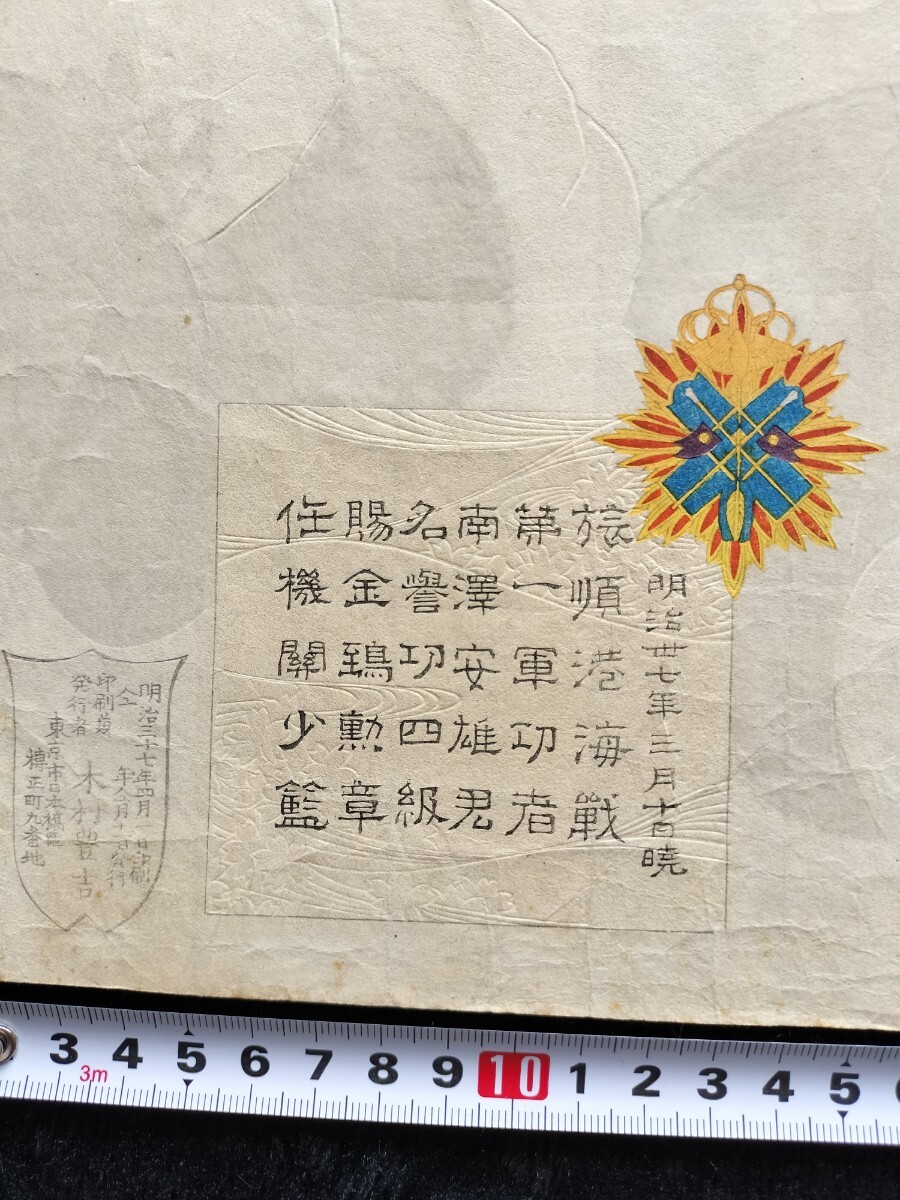 明治卅七年三月十日曉
旅順港海戰
第一軍功者
南澤安雄君
名譽功四級
賜金鵄勲章
任機關少監
明治三十七年四月一日印刷
仝年仝月十日発行
印刷兼
発行者
木村豊吉
東京市日本橋區
檜正町九番地
3 4 5 6 7 8 9 10 1 2 3 4 5 6
3m